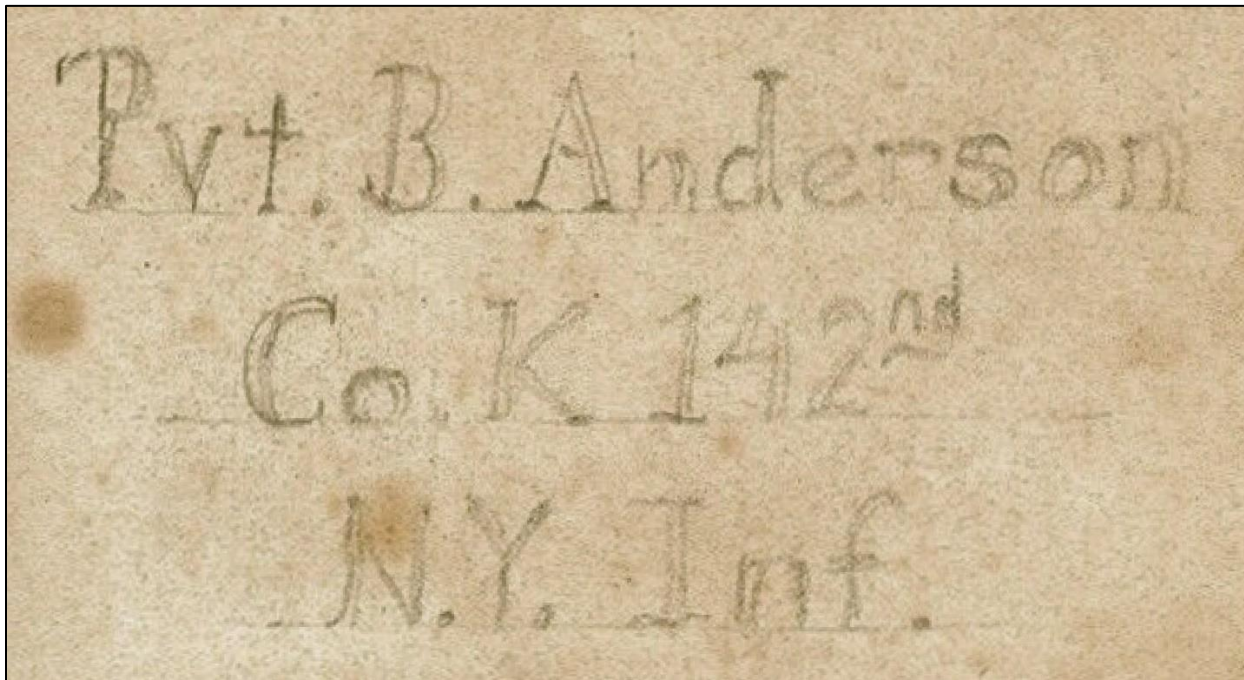 Pvt. B. Anderson
Co. K 142nd
N.Y. Inf.